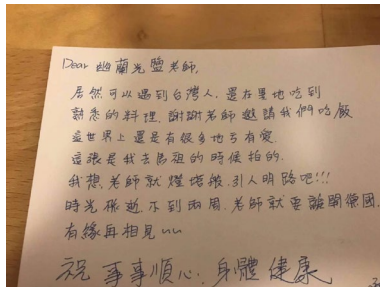 Dear 幽蘭光鹽老師,
居然可以遇到台灣人，還在異地吃到
熟悉的料理，謝謝老師邀請我們吃飯
這世界上還是有很多地方有愛.
這張是我去馬祖的時候拍的.
我想，老師就燈塔般，引人明路吧!!!
時光稼逝，不到兩周，老師就要離開德國.
有緣再相見~~
祝 事事順心，身體健康